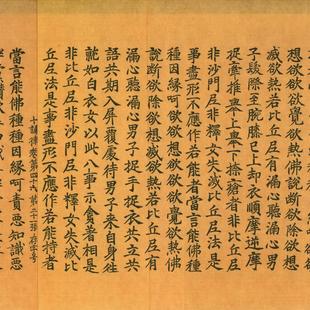 想欲欲欲覺欲熱佛說斷欲除欲想
滅欲熱若比丘尼有漏心聽漏心男
子髮際至腕膝已上却衣順摩逆摩
捉牽推舉上舉下捺瘡者非比丘尼
非沙門尼非釋女失滅比丘尼法是
事盡形不應作若能者當言能佛種
種因緣呵欲欲想欲欲欲覺欲熱佛
說斷欲除欲想滅欲熱若比丘尼有
漏心聽漏心男子捉手捉衣共立共
語共期入屏覆處待男子來自身往
就如白衣女以此八事示貪著相是
非比丘尼非沙門尼非釋女失滅比
丘尼法是事盡形不應作若能持者
十誦律卷第四十六 第二十一張 存字号
當言能佛種種因緣呵責惡知識惡